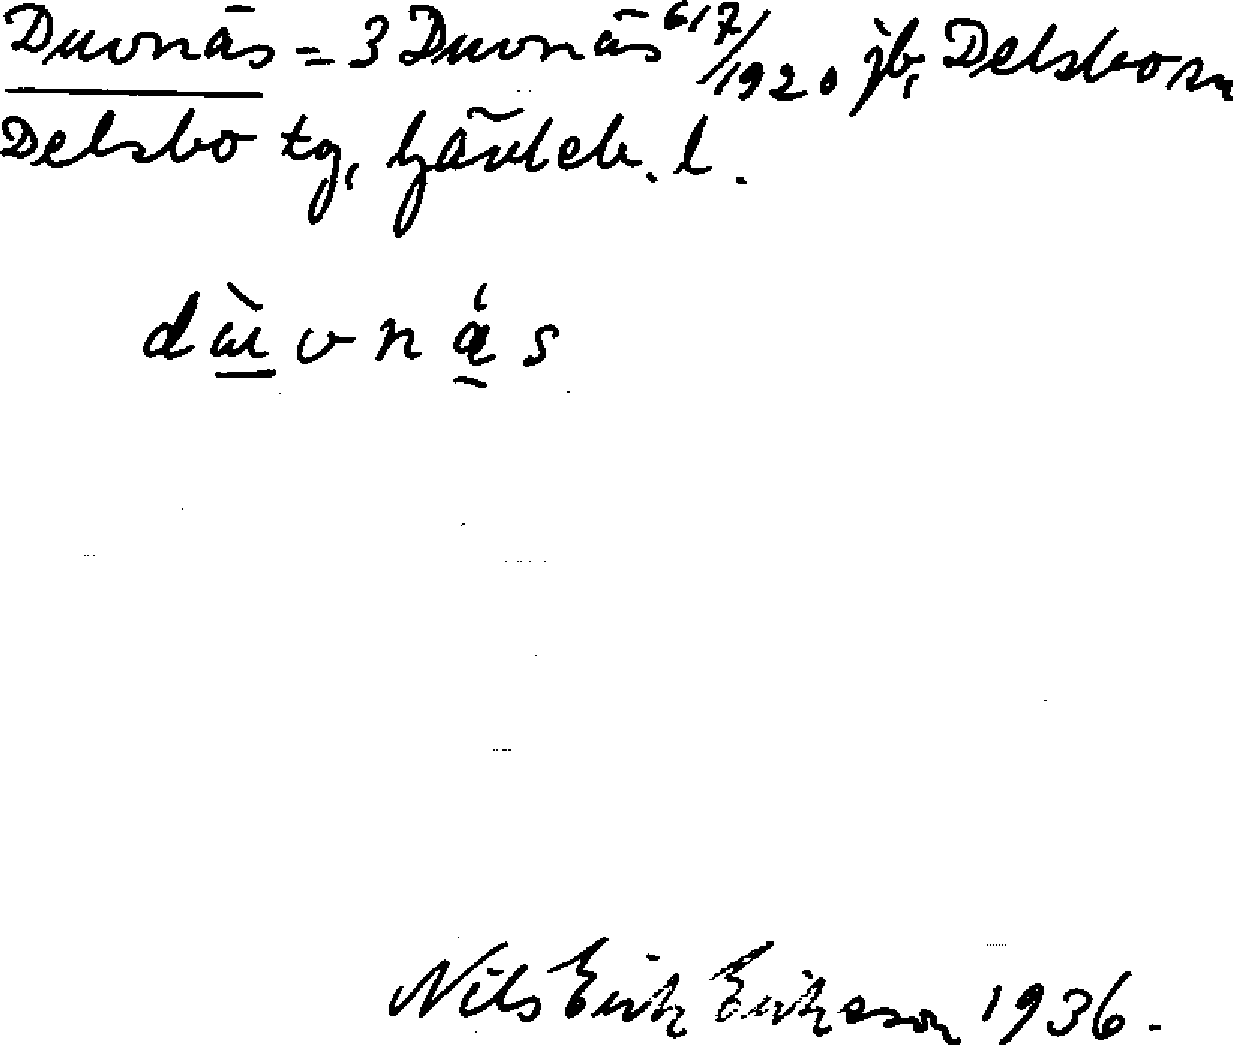 Duvnäs = 3 Duvnäs 6/7/1920 jb, Delsbo sn
Delsbo tg, Gävleb. l.
dùvnás
Nils Erik Eriksson 1936.